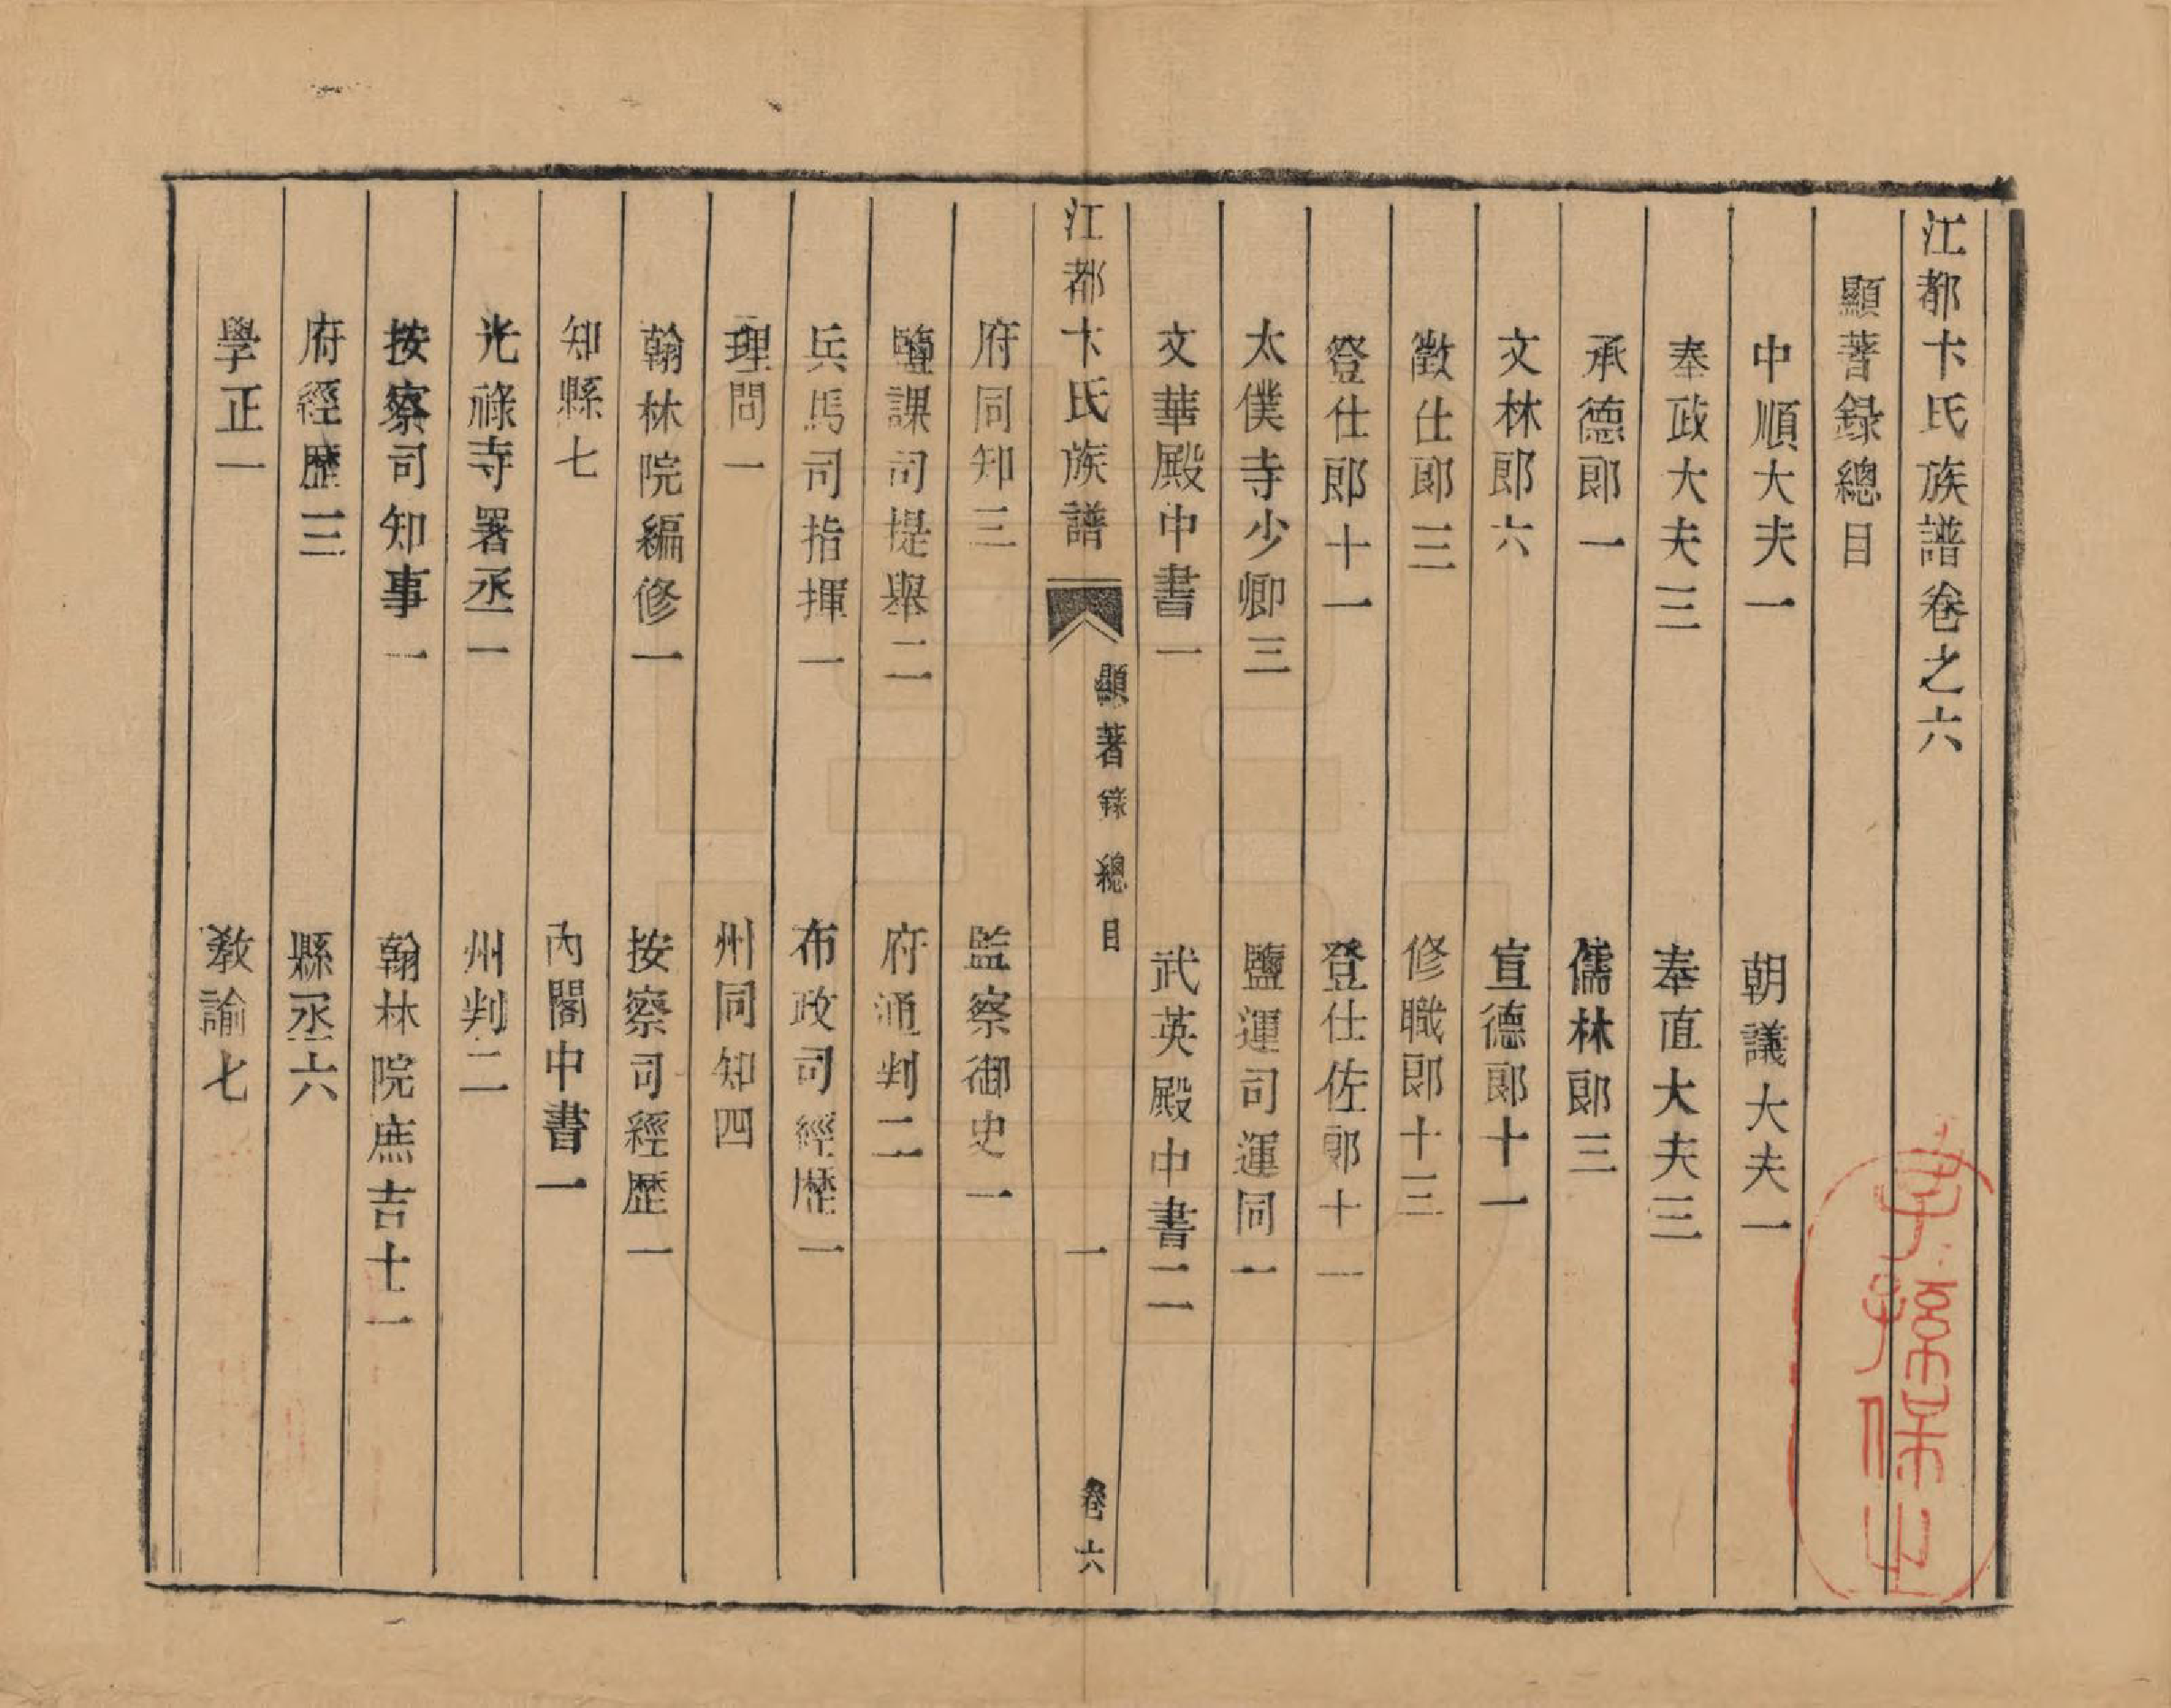 江都卞氏族譜卷之六
顯著錄總目
中順大夫一　朝議大夫一
奉政大夫三　奉直大夫三
承德郎一　儒林郎三
文林郎六　宣德郎十一
徵仕郎三　修職郎十三
登仕郎十一　登仕佐郎十一
太僕寺少卿三　鹽運司運同一
文華殿中書一　武英殿中書二
江都卞氏族譜　顯著錄　總目　一　卷六
府同知三　監察御史一
鹽課司提舉二　府通判二
兵馬司指揮一　布政司經歷一
理問一　州同知四
翰林院編修一　按察司經歷一
知縣七　內閣中書一
光祿寺署丞一　州判二
按察司知事一　翰林院庶吉士一
府經歷三　縣丞六
學正一　教諭七
子孫保之